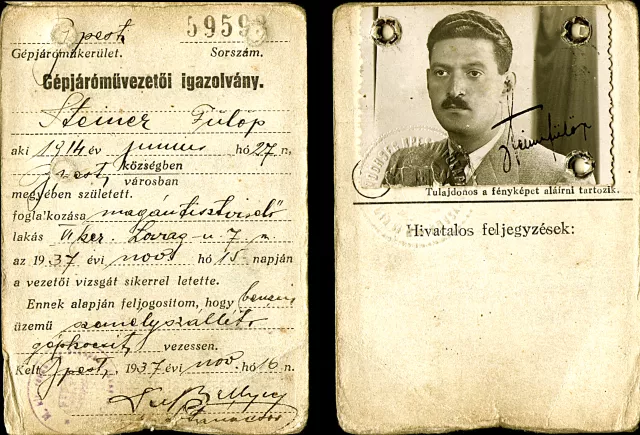 Bpest 59598
Gépjárómükerület. Sorszám.
Gépjáróművezetői igazolvány.
Steiner Fülöp
aki 1914 év junius hó 27 n,
Bpest, községben
városban
megyében született.
foglalkozása magántisztviselő
lakás VI ker. Lovag u 7 n
az 1937 évi nov hó 15 napján
a vezetői vizsgát sikerrel letette.
Ennek alapján feljogosítom, hogy benzin
üzemű személyszállító
gépkocsit vezessen.
Kelt Bpest, 1937 évi nov. hó 16 n.
Steiner Fülöp
Tulajdonos a fényképet aláírni tartozik.
Hivatalos feljegyzések: